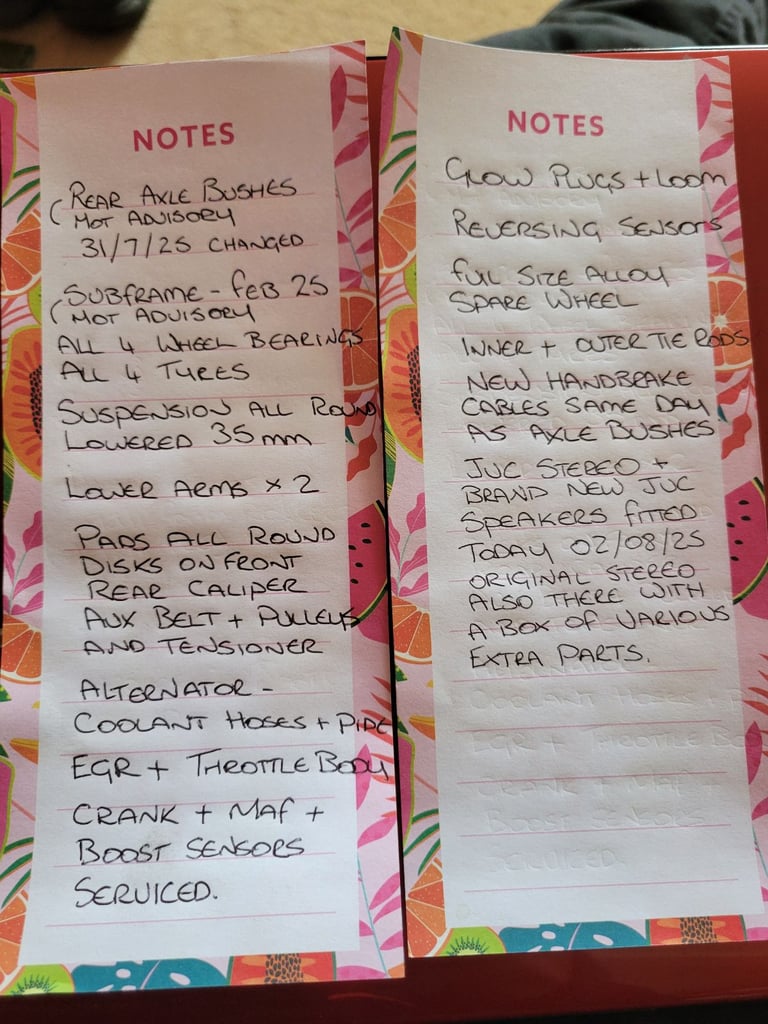 NOTES
REAR AXLE BUSHES
(MOT ADVISORY
31/7/25 CHANGED
SUBFRAME - FEB 25
(MOT ADVISORY
ALL 4 WHEEL BEARINGS
ALL 4 TYRES
SUSPENSION ALL ROUND
LOWERED 35mm
LOWER ARMS x 2
PADS ALL ROUND
DISKS ON FRONT
REAR CALIPER
AUX BELT + PULLEYS
AND TENSIONER
ALTERNATOR -
COOLANT HOSES + PIPE
EGR + THROTTLE BODY
CRANK + MAF +
BOOST SENSORS
SERVICED.
NOTES
GLOW PLUGS + LOOM
REVERSING SENSORS
FULL SIZE ALLOY
SPARE WHEEL
INNER + OUTER TIE RODS
NEW HANDBRAKE
CABLES SAME DAY
AS AXLE BUSHES
JVC STEREO +
BRAND NEW JVC
SPEAKERS FITTED
TODAY 02/08/25
ORIGINAL STEREO
ALSO THERE WITH
A BOX OF VARIOUS
EXTRA PARTS.